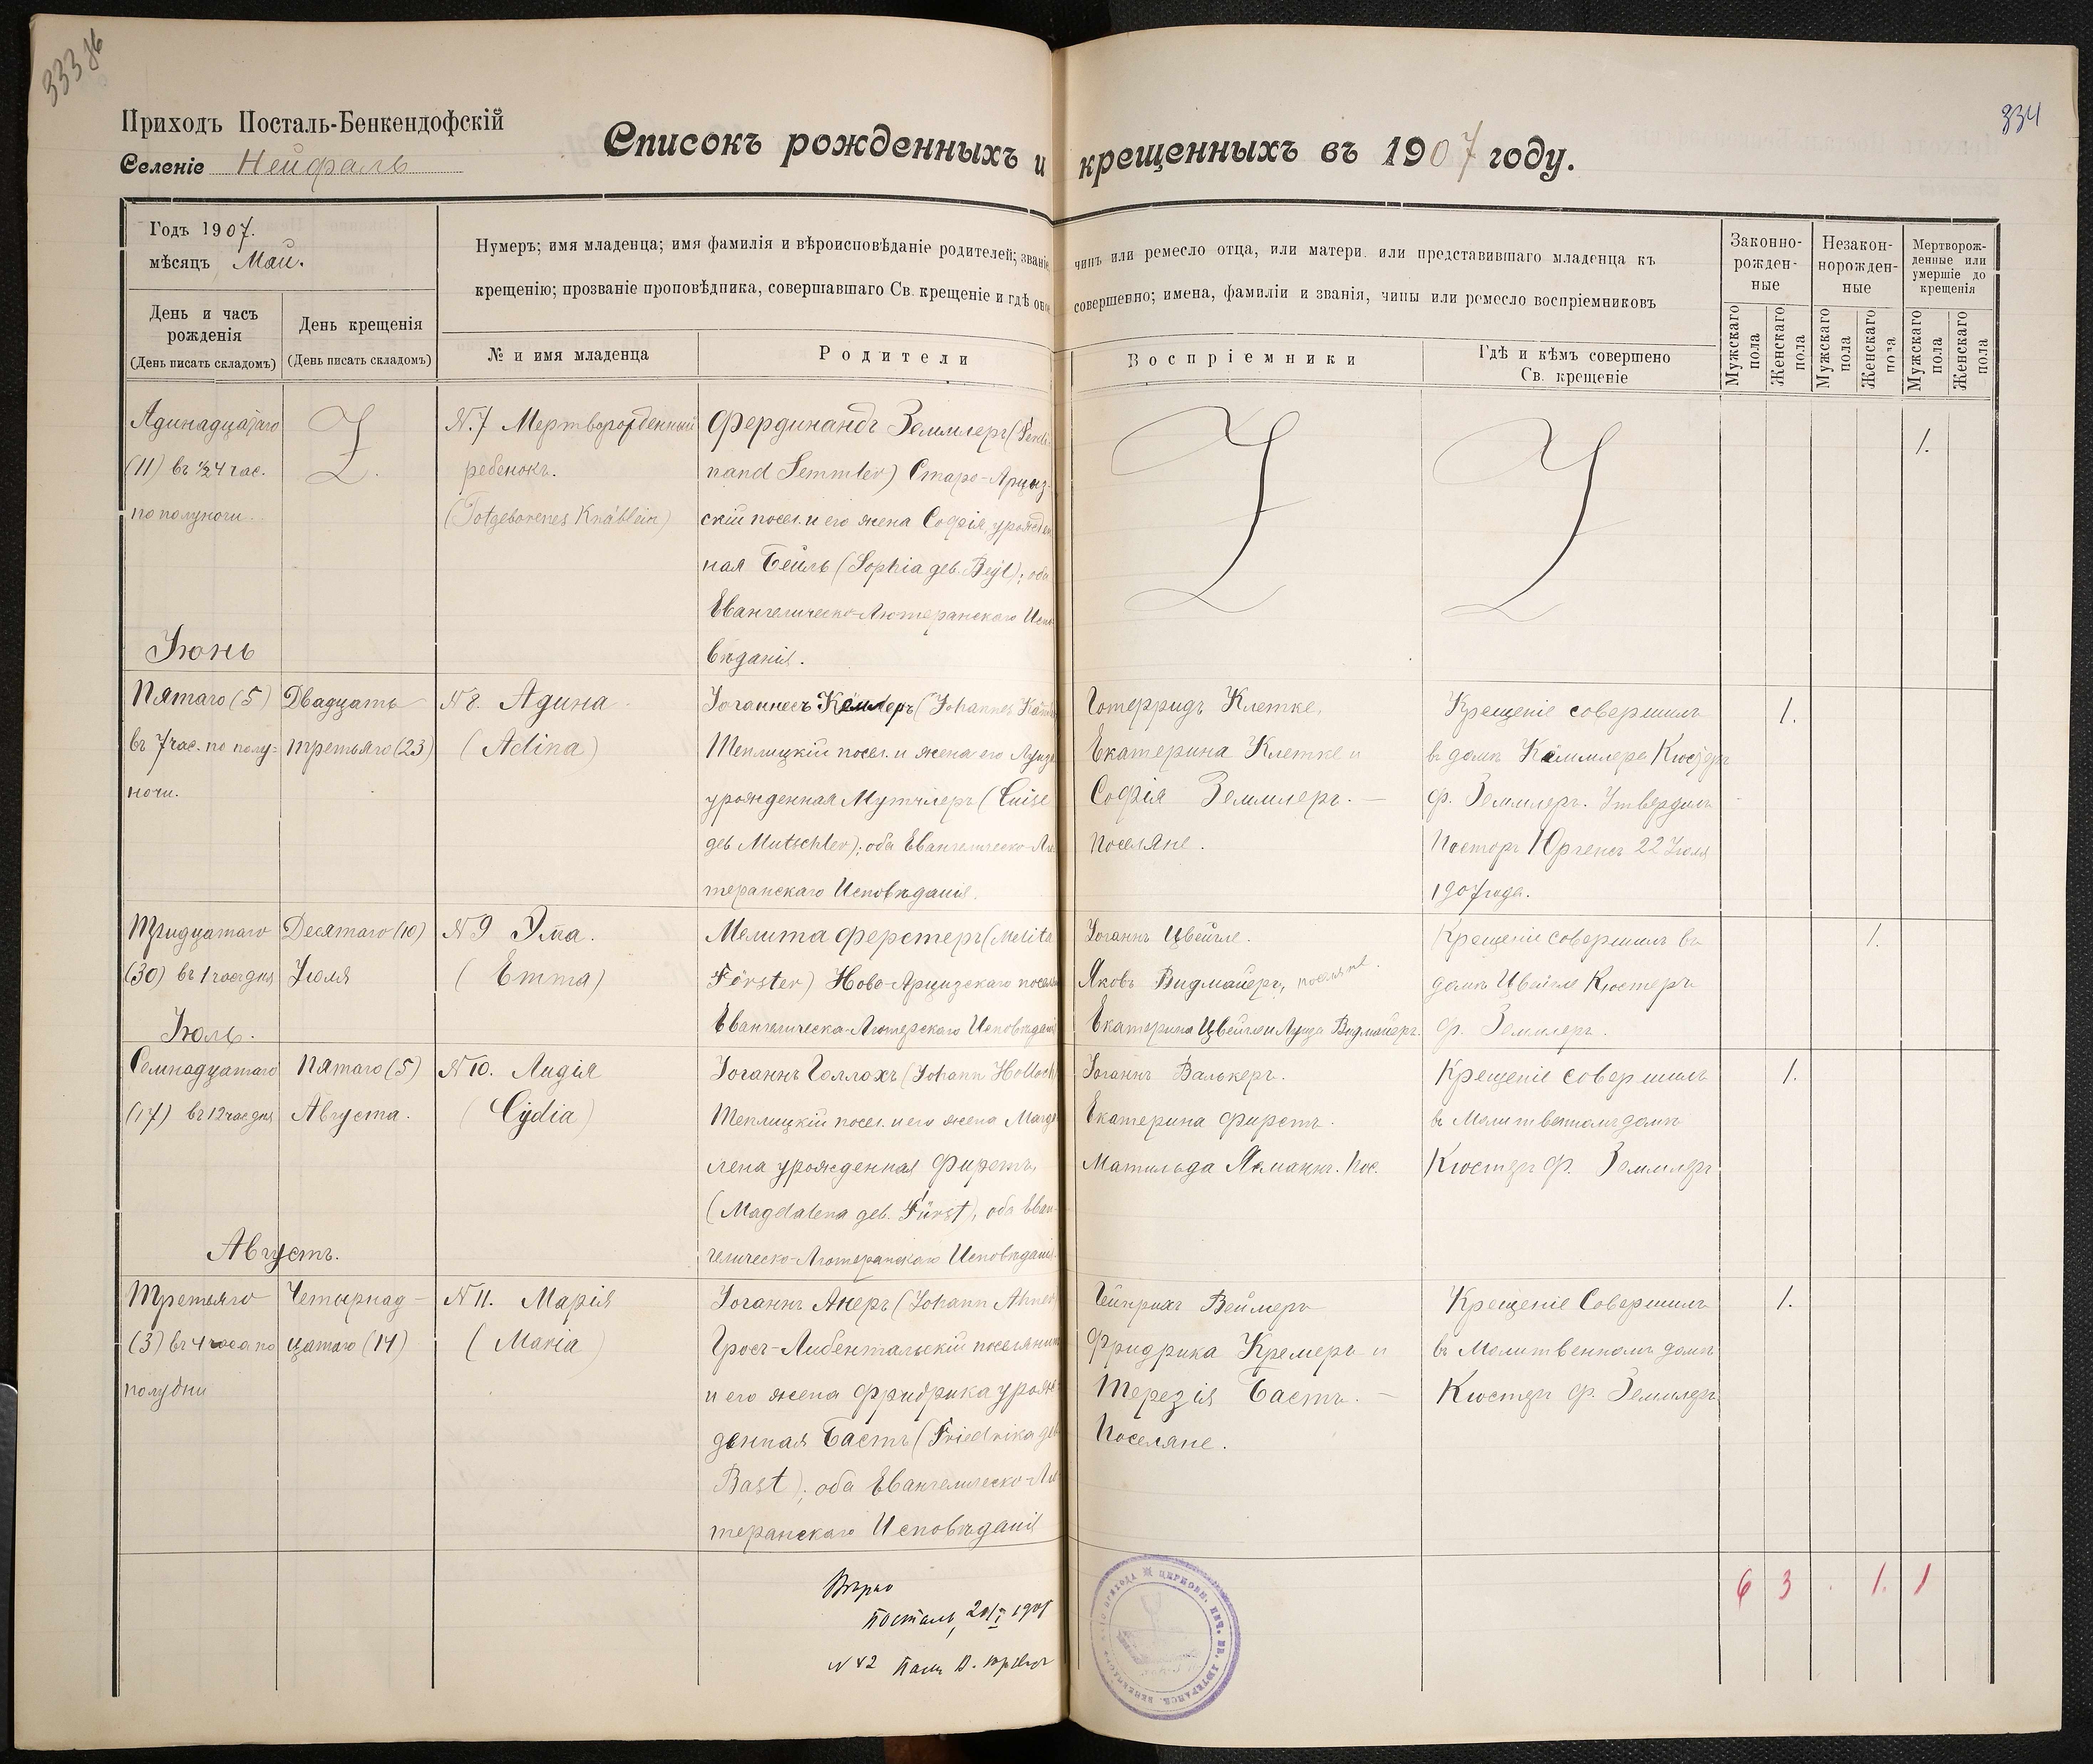 333 об
334
Приходъ Посталь-Бенкендофскій
Селеніе Нейфаль
Списокъ рожденныхъ и крещенныхъ въ 1907 году.
Годъ 1907.
мѣсяцъ Май.
День и часъ рожденія
(День писать складомъ)
День крещенія
(День писать складомъ)
Нумеръ; имя младенца; имя фамилія и вѣроисповѣданіе родителей; званіе чинъ или ремесло отца, или матери. или представившаго младенца къ
крещенію; прозваніе проповѣдника, совершавшаго Св. крещеніе и гдѣ оное совершенно; имена, фамиліи и званія, чины или ремесло воспріемниковъ
№ и имя младенца
Родители
Воспріемники
Гдѣ и кѣмъ совершено
Св. крещеніе
Законно-
рожден-
ные
Незакон-
норожден-
ные
Мертворож-
денные или
умершіе до
крещенія
Мужскаго пола
Женскаго пола
Мужскаго пола
Женскаго пола
Мужскаго пола
Женскаго пола
Адинадцатаго
(11) въ ½4 час.
по полуночи.
N.7 Мертворожденный
ребенокъ.
(Totgeborenes Knäblein)
Фердинандъ Земмлеръ (Ferdi-
nand Semmler) Старо-Арциз-
скій посел. и его жена Софія, урожден
ная Бейль (Sophia geb. Beyl); оба
Евангелическо-Лютеранскаго Испо-
вѣданія.
1.
Іюнь
Пятаго (5)
въ 7 час. по полу-
ночи.
Двадцать
третьяго (23)
N 8. Адина
(Adina)
Іоганнесъ Кеммлеръ (Johannes
Теплицкій посел. и жена его Луиза
урожденная Мутчлеръ (Luise
geb Mutschler); оба Евангелическо-Лю
теранскаго Исповѣданія.
Готерридъ Клетке,
Екатерина Клетке и
Софія Земмлеръ. —
Поселяне.
Крещеніе совершилъ
въ домѣ Кеммлера Кюстеръ
Ф. Земмлеръ. Утвердилъ
Пасторъ Юргенсъ 22 Іюля
1907 года.
1.
Тридцатаго
(30) въ 1 часъ дня
Десятаго (10)
Іюля
N 9 Эма.
(Emma)
Мелита Ферстеръ (Melita
Förster) Ново-Арцизскаго посел
Евангелическа-Лютерскаго Исповѣданія
Іоганнъ Цвейгле.
Яковъ Видмайеръ, поселяне.
Екатерина Цвейгле и Луиза Видмайеръ.
Крещеніе совершилъ въ
домѣ Цвейгле Кюстеръ
Ф. Земмлеръ.
1.
Іюль.
Семнадцатаго
(17) въ 12 час дня
Пятаго (5)
Августа.
N 10. Лидія
(Lydia)
Іоганнъ Голлохъ (Johann Holloch
Теплицкій посел. и его жена Магда
лена урожденная Фирстъ,
(Magdalena geb. Fürst), оба Еван-
гелическо-Лютеранскаго Исповѣданія.
Іоганнъ Валькеръ.
Екатерина Фирстъ.
Матильда Аманнъ. Пос.
Крещеніе совершилъ
въ Молитвенномъ домѣ
Кюстеръ Ф. Земмлеръ
1.
Августъ.
Третьяго
(3) въ 4 часа по
полудни
Четырнад-
цатаго (14)
N 11. Марія
(Maria)
Іоганнъ Анеръ (Johann Ahner
Гросъ-Либентальскій поселянинъ
и его жена Фридрика урож-
денная Бастъ (Friedrika geb
Bast); оба Евангелическо-Лю
теранскаго Исповѣданія
Гейнрихъ Веймеръ
Фридрика Кремеръ и
Терезія Бастъ. —
Поселяне.
Крещеніе Совершилъ
въ Молитвенномъ домѣ
Кюстеръ Ф. Земмлеръ
1.
6 3 . 1. 1
Вѣрно
Посталь,
N 42